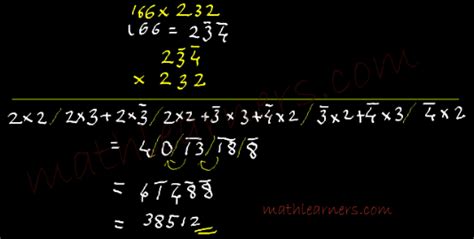 166 × 232
166 = 23̄4̄
23̄4̄
× 232
2×2 / 2×3+2×3̄ / 2×2+3̄×3+4̄×2 / 3̄×2+4̄×3 / 4̄×2
= 4/0/1̄3̄/1̄8̄/8̄
= 41̄4̄8̄8̄
= 38512
mathlearners.com
mathlearners.com